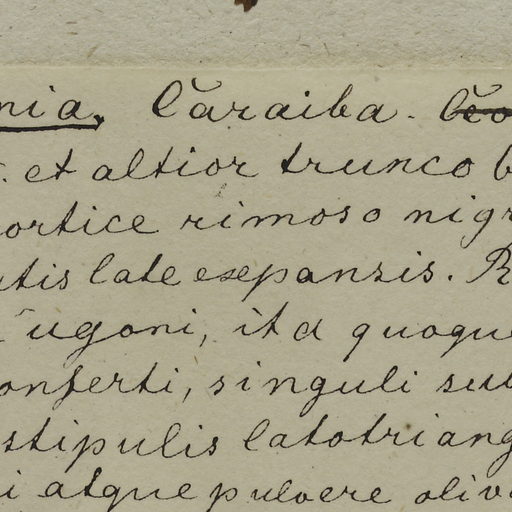 nia. Căraiba.
et altior trunco b
ortice rimoso nigr
tis late expansis. R
ugoni, ita quoque
onferti, singuli sub
stipulis latotriang
i atque pulvere oliv